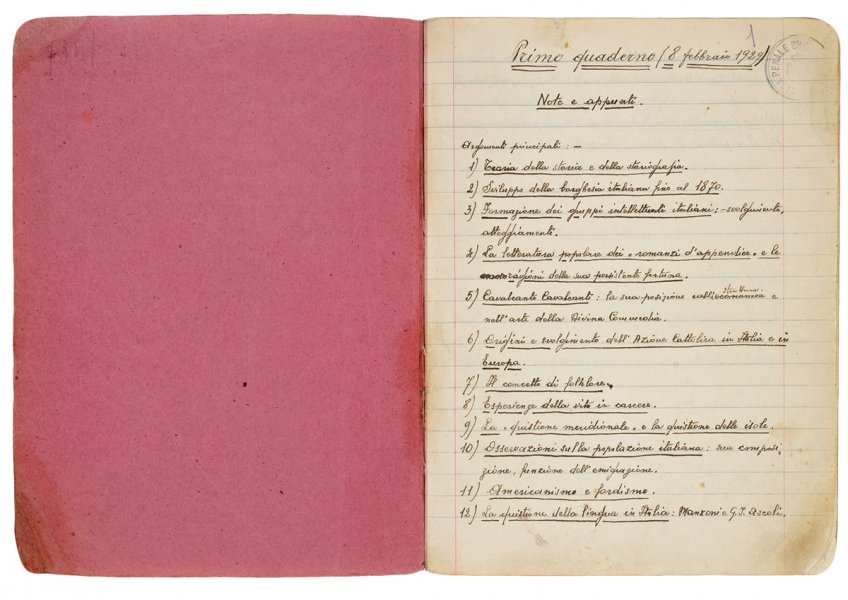 1
Primo quaderno (8 febbraio 1929)
PENALE
Note e appunti.
Argomenti principali: —
1) Teoria della storia e della storiografia.
2) Sviluppo della borghesia italiana fino al 1870.
3) Formazione dei gruppi intellettuali italiani: - svolgimento,
atteggiamenti.
4) La letteratura popolare dei « romanzi d'appendice » e le
ragioni della sua persistente fortuna.
5) Cavalcante Cavalcanti: la sua posizione nella struttura e
nell'arte della Divina Commedia.
6) Origini e svolgimento dell'Azione Cattolica in Italia e in
Europa.
7) Il concetto di folklore.
8) Esperienze della vita in carcere.
9) La « quistione meridionale » e la quistione delle isole.
10) Osservazioni sulla popolazione italiana: sua composi-
zione, funzione dell'emigrazione.
11) Americanismo e fordismo.
12) La quistione della lingua in Italia: Manzoni e G. I. Ascoli.